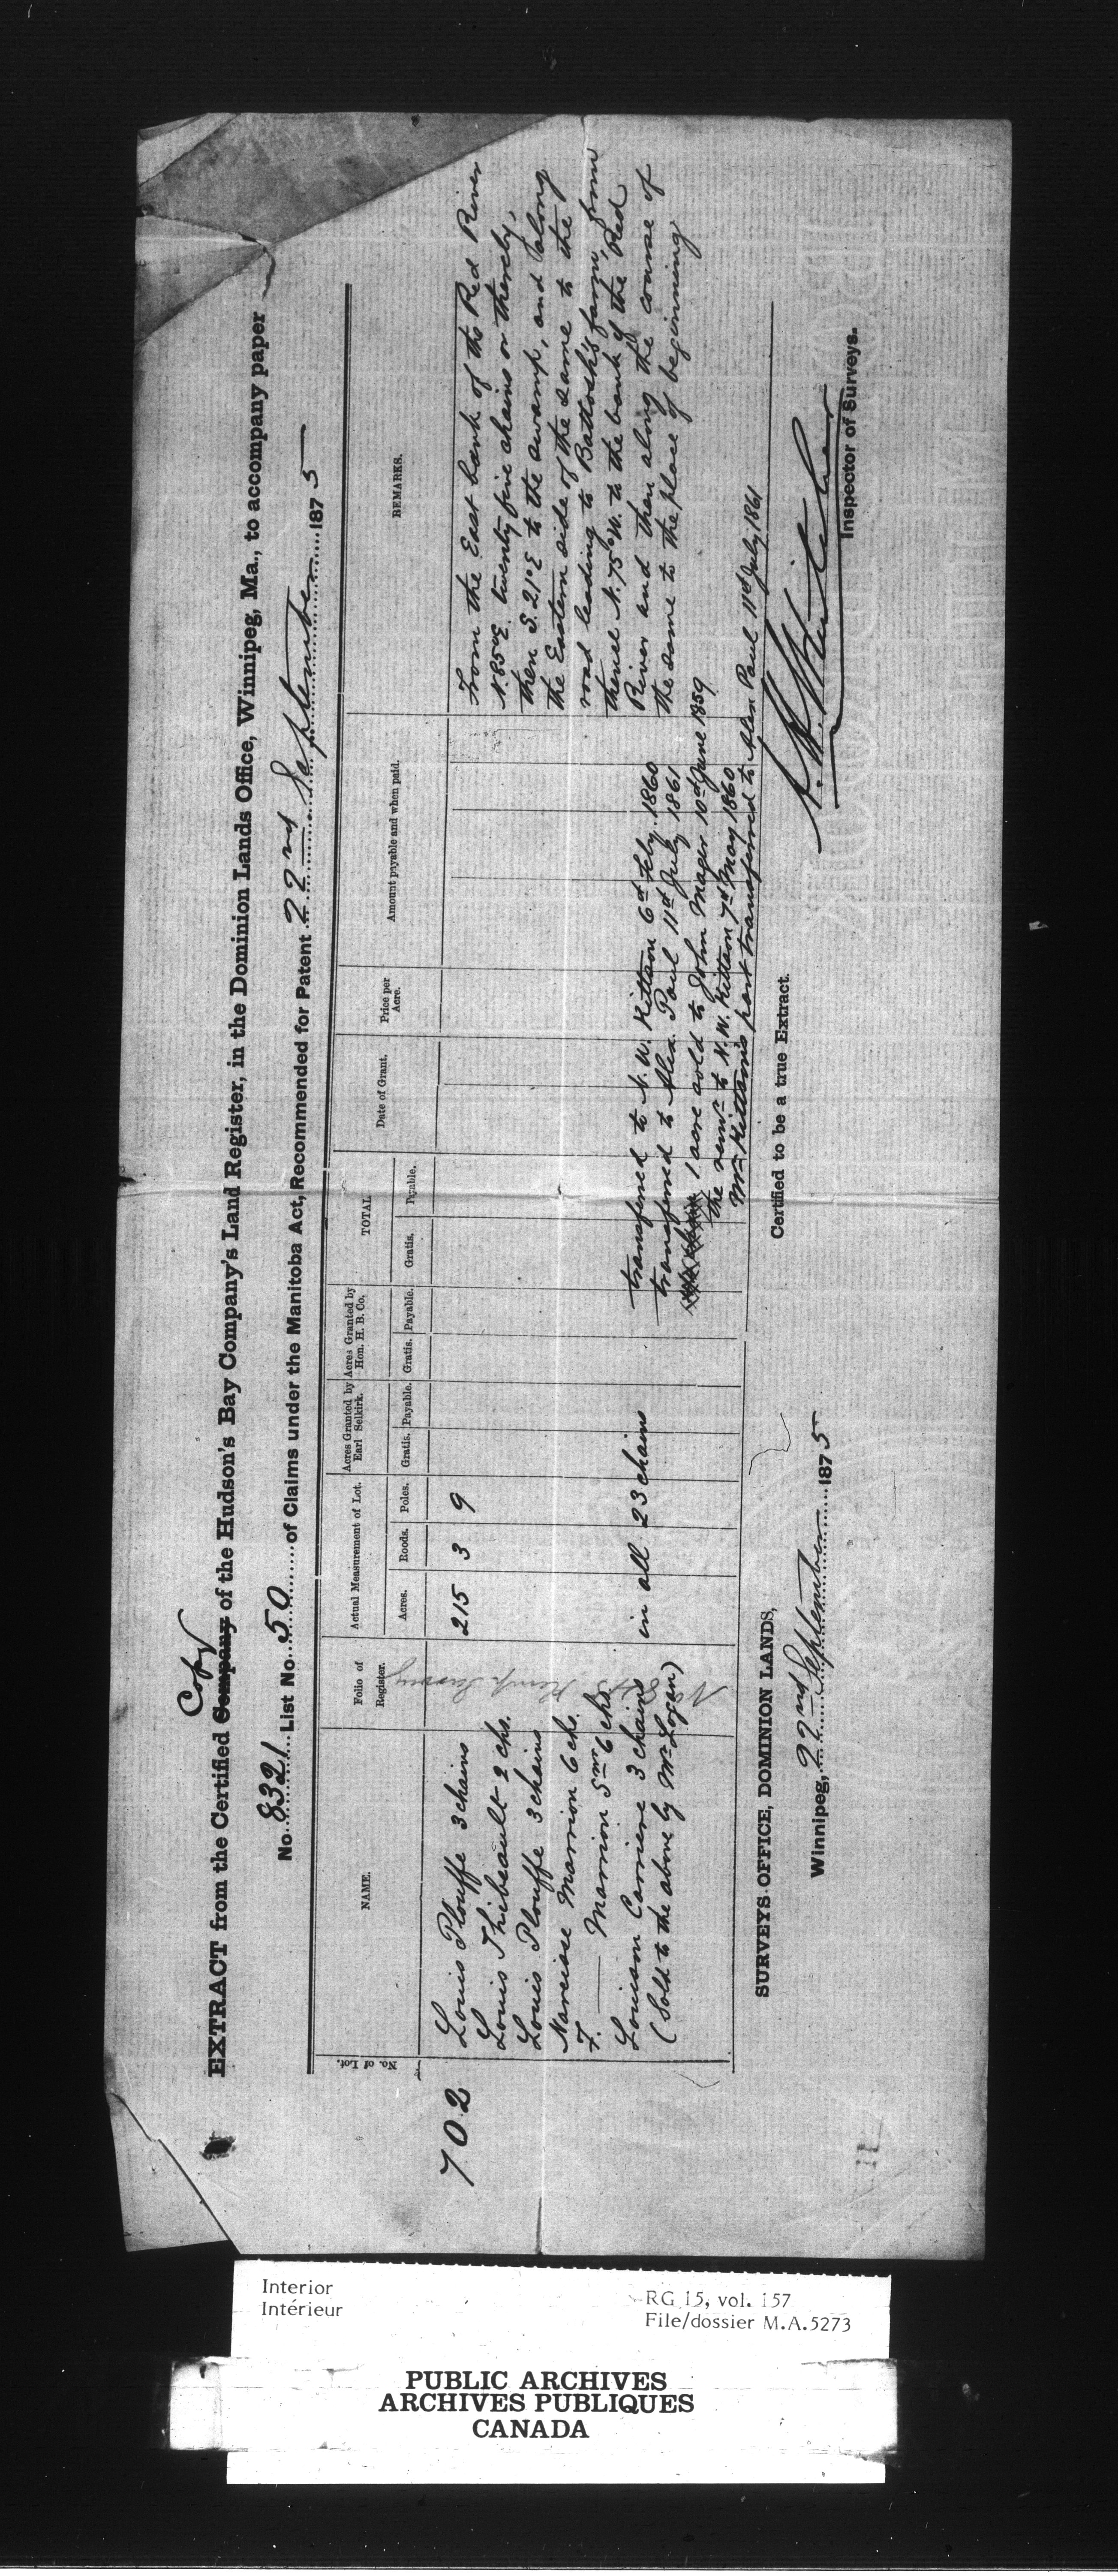 EXTRACT from the Certified Company Copy of the Hudson's Bay Company's Land Register, in the Dominion Lands Office, Winnipeg, Ma., to accompany paper
No. 8321 List No. 50 of Claims under the Manitoba Act, Recommended for Patent 22nd September 1875
No. of Lot.
NAME.
Folio of Register.
Actual Measurement of Lot.
Acres. Roods. Poles.
Acres Granted by Earl Selkirk.
Gratis. Payable.
Acres Granted by Hon. H. B. Co.
Gratis. Payable.
TOTAL
Gratis. Payable.
Date of Grant.
Price per Acre.
Amount payable and when paid.
REMARKS.
702
Louis Plouffe 3 chains
Louis Thibeault 2 chs.
Louis Plouffe 3 chains
Narcisse Marrion 6 chs.
F. — Marrion Senr 6 chs.
Louison Carriere 3 chains
(Sold to the above by Mr Logan)
215 3 9
in all 23 chains
transferred to N. W. Kittson 6th Feby. 1860
transferred to Alex. Paul 11th July 1861
1 acre sold to John Mager 10th June 1859
the remr to N. W. Kittson 7th May 1860
Mr Kittson's part transferred to Alex Paul 11th July 1861
From the East bank of the Red River
N. 85° E. twenty five chains or thereby,
then S. 21° E to the swamp, and along
the Eastern side of the same to the
road leading to Battosh's farm, from
thence N. 75° W. to the bank of the Red
River and then along the course of
the same to the place of beginning
SURVEYS OFFICE, DOMINION LANDS,
Winnipeg, 22nd September 1875
Certified to be a true Extract.
Inspector of Surveys.
Interior
Intérieur
RG 15, vol. 157
File/dossier M.A.5273
PUBLIC ARCHIVES
ARCHIVES PUBLIQUES
CANADA